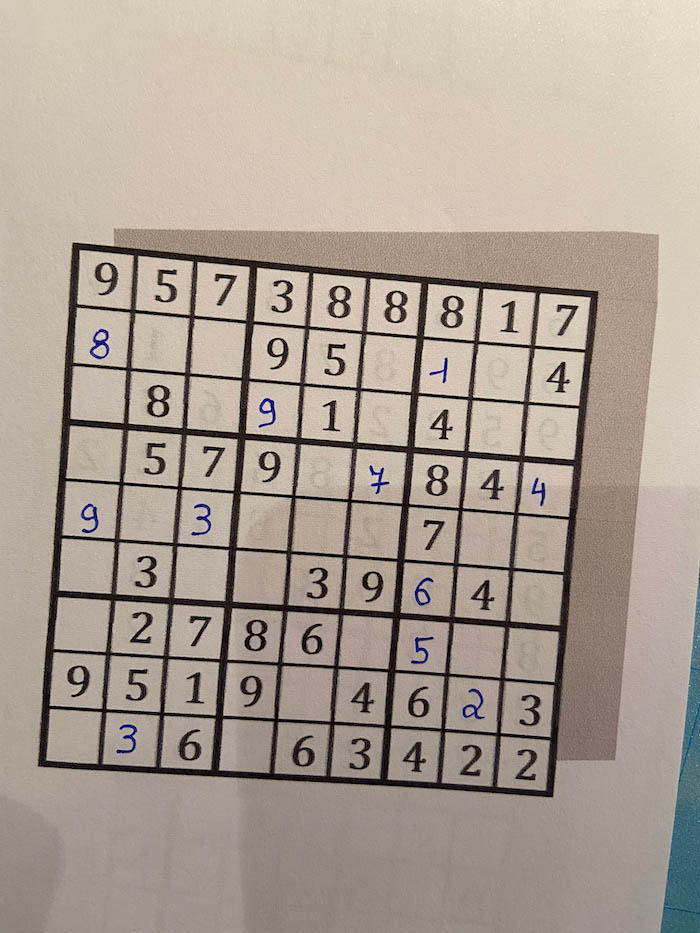 9 5 7 3 8 8 8 1 7
8 9 5 1 4
8 9 1 4
5 7 9 7 8 4 4
9 3 7
3 3 9 6 4
2 7 8 6 5
9 5 1 9 4 6 2 3
3 6 6 3 4 2 2